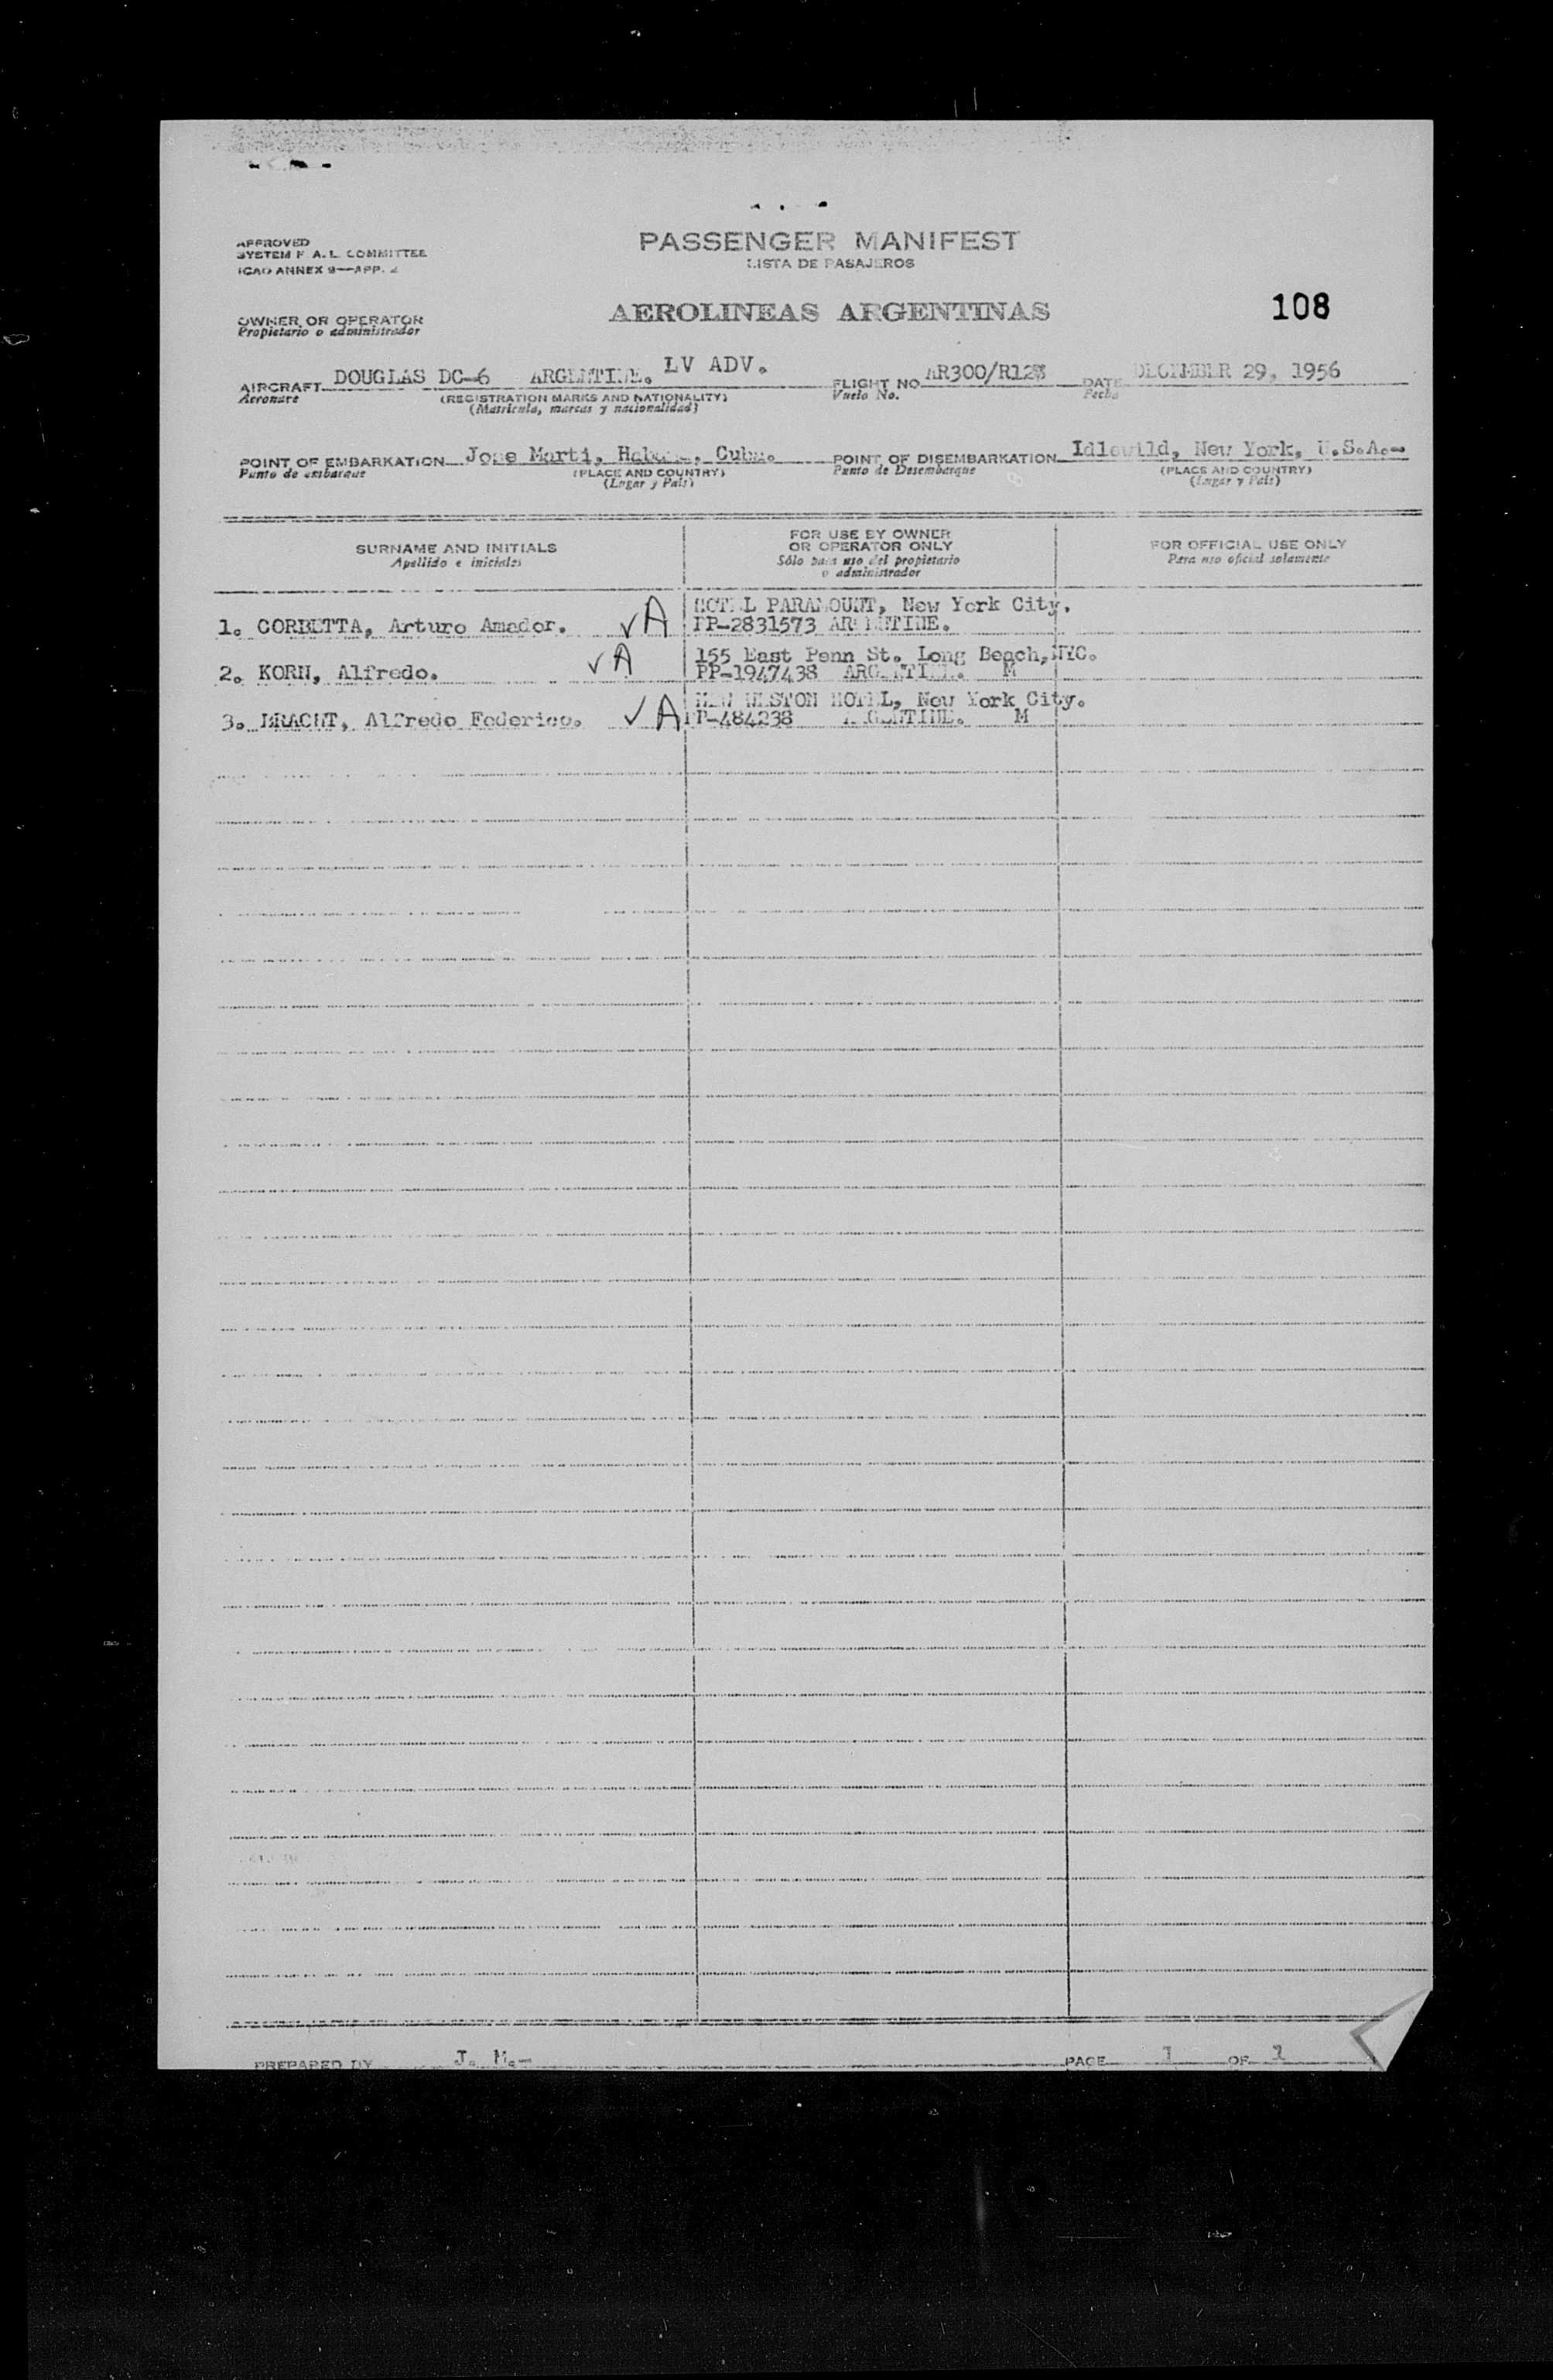 PASSENGER MANIFEST
LISTA DE PASAJEROS
APPROVED
SYSTEM F. A. L. COMMITTEE
ICAO ANNEX 9—APP. 4
AEROLINEAS ARGENTINAS
108
OWNER OR OPERATOR
Propietario o administrador
AIRCRAFT DOUGLAS DC-6 ARGENTINE. LV ADV. FLIGHT NO. AR300/R128 DATE DECEMBER 29, 1956
Aeronave (REGISTRATION MARKS AND NATIONALITY) Vuelo No. Fecha
(Matrícula, marcas y nacionalidad)
POINT OF EMBARKATION Jose Marti, Habana, Cuba. POINT OF DISEMBARKATION Idlewild, New York, U.S.A.-
Punto de embarque (PLACE AND COUNTRY) Punto de Desembarque (PLACE AND COUNTRY)
(Lugar y País) (Lugar y País)
SURNAME AND INITIALS
Apellido e iniciales
FOR USE BY OWNER
OR OPERATOR ONLY
Sólo para uso del propietario
o administrador
FOR OFFICIAL USE ONLY
Para uso oficial solamente
HOTEL PARAMOUNT, New York City.
1. CORBETTA, Arturo Amador. ✓ A PP-2831573 ARGENTINE.
155 East Penn St. Long Beach, NYC.
2. KORN, Alfredo. ✓ A PP-1947438 ARGENTINE. M
NEW WESTON HOTEL, New York City.
3. BRACHT, Alfredo Federico. ✓ A PP-484238 ARGENTINE. M
PREPARED BY J. M.- PAGE 1 OF 1